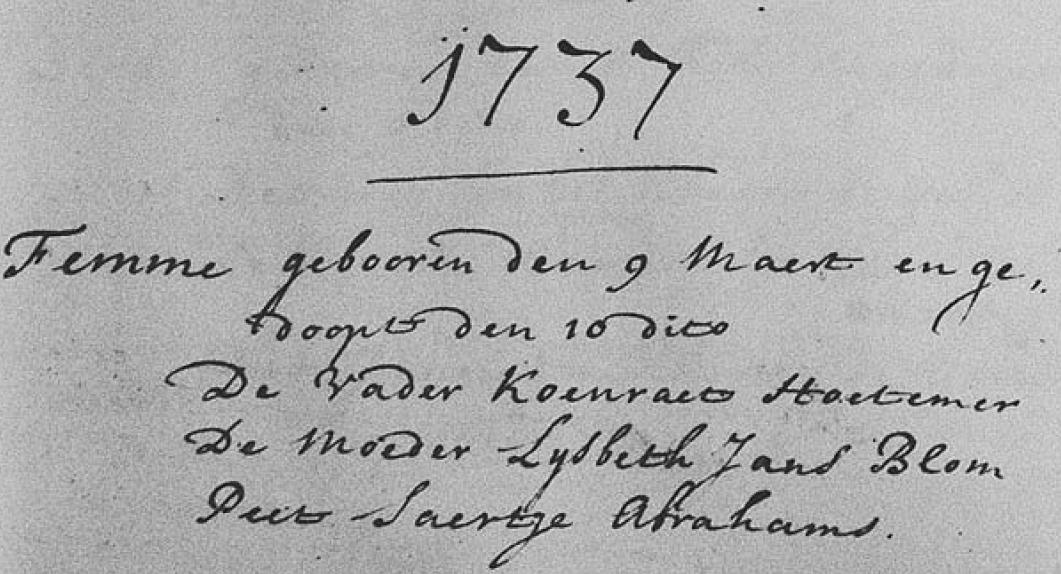 1737
Femme gebooren den 9 Maert en ge,
doopt den 10 dito
De Vader Koenraet Hoetemer
De Moeder Lysbeth Jans Blom
Peet Saertje Abrahams.